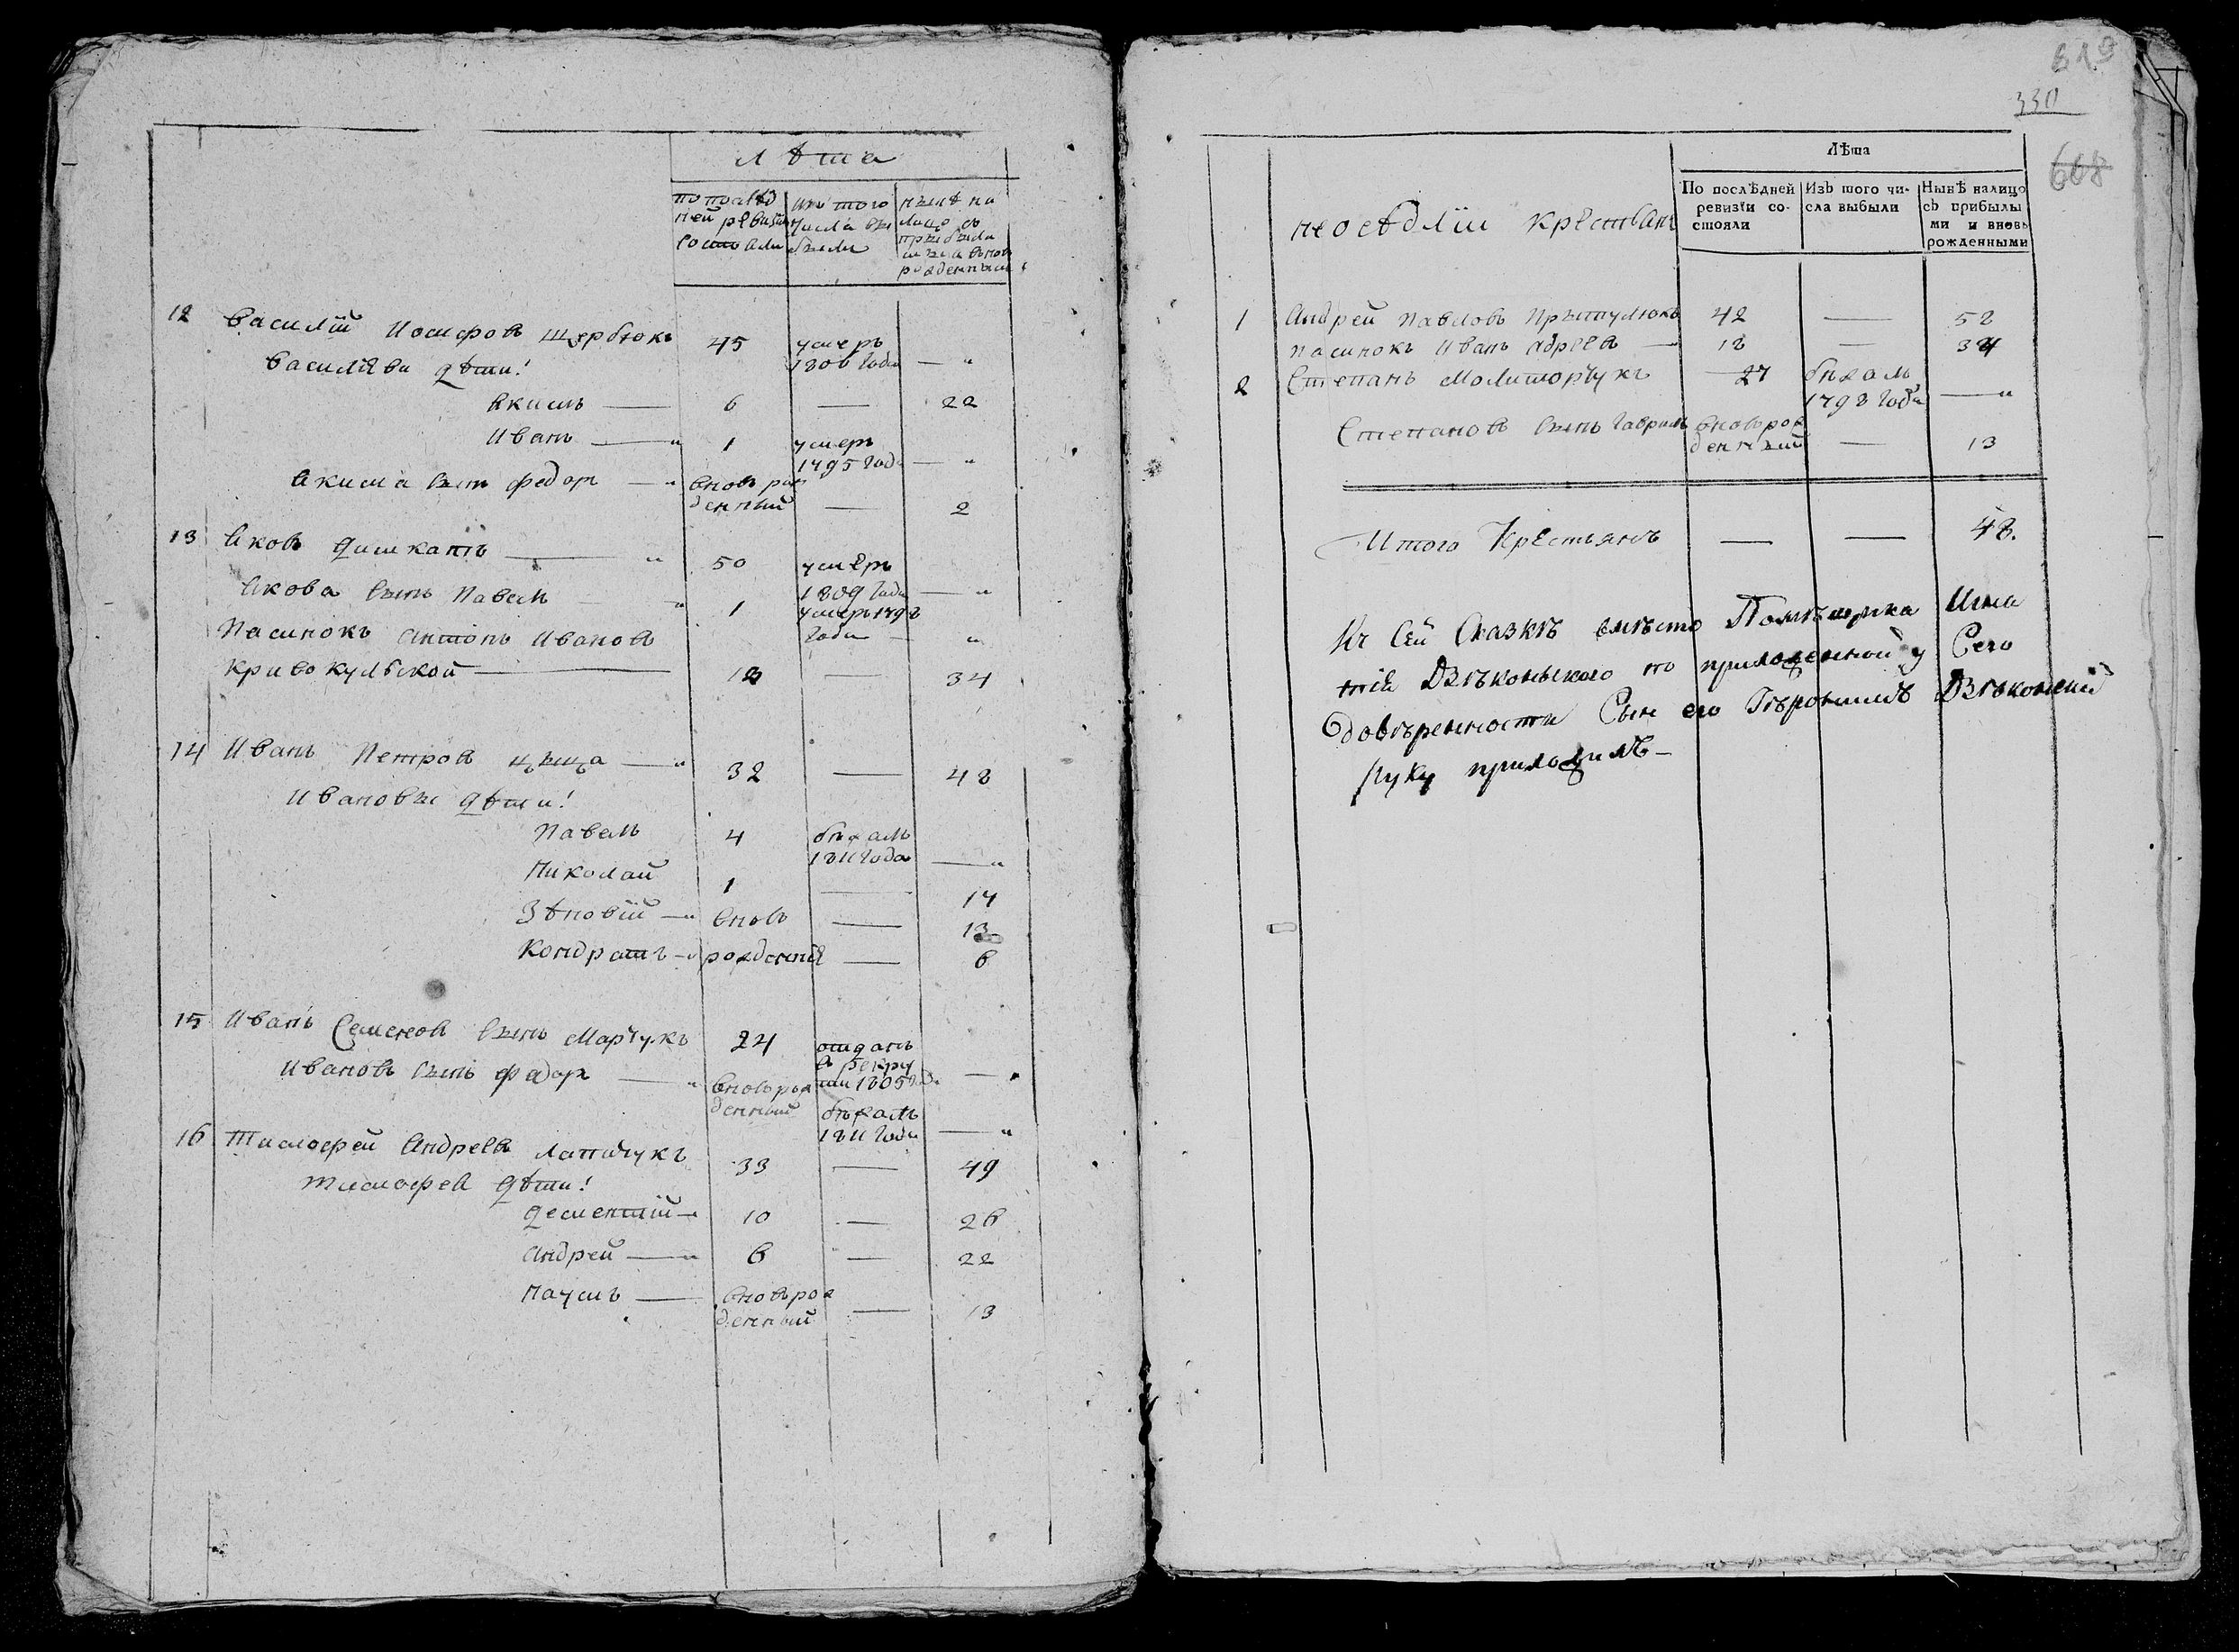 лѣта
по послѣд
ней ревизіи
состояли
изъ того
числа вы
были
нынѣ на
лицо съ
прыбыли
мы и вновь
рожденными
12 Василій Иосифовъ Щербюкъ 45 умеръ
1806 года — "
Василіеви дѣти!
Якимъ — 6 — 22
Иванъ — " 1 умеръ
1795 года — "
Якима сынъ Федоръ — " вновь рож
денный — 2
13 Яковъ Дишкантъ — " 50 умеръ
1809 года — "
Якова сынъ Павелъ — " 1 умеръ 1798
года — "
Пасинокъ Антонъ Ивановъ
Кривокульской — 18 — 34
14 Иванъ Петровъ Цыца — " 32 — 48
Ивановы дѣти!
Павелъ 4 бѣжалъ
1811 года — "
Николай 1 — 17
Зѣновій — " вновь — 13
Кондратъ — " рожденніе — 6
15 Иванъ Семеновъ сынъ Марчукъ 24 отданъ
в рекру
ти 1805 года — "
Ивановъ сынъ Федоръ — " вновь рож
денный бѣжалъ
1811 года — "
16 Тимофей Андреевъ Лапчукъ 33 — 49
Тимофея дѣти!
Дементій — " 10 — 26
Андрей — " 6 — 22
Наумъ — вновь рож
денный — 13
619
330
668
Лѣта
неосѣдліи крестьянъ
По послѣдней
ревизіи со-
стояли
Изъ того чи-
сла выбыли
Нынѣ налицо
съ прибылы
ми и вновь
рожденными
1 Андрей Павловъ Прытулюкъ 42 — 58
пасинокъ Иванъ Адреевъ — 18 — 34
2 Степанъ Молиторчукъ — 27 бѣжалъ
1798 года — "
Степановъ сынъ Гаврилъ вновь рож
денный — 13
Итого Крестьянъ — — 48.
Къ сей Сказкѣ вмѣсто Помѣщика Игна
тія Дзѣконьского по приложенной у сего
довѣренности Сын его Гѣронимъ Дзѣконскій
руку приложилъ —